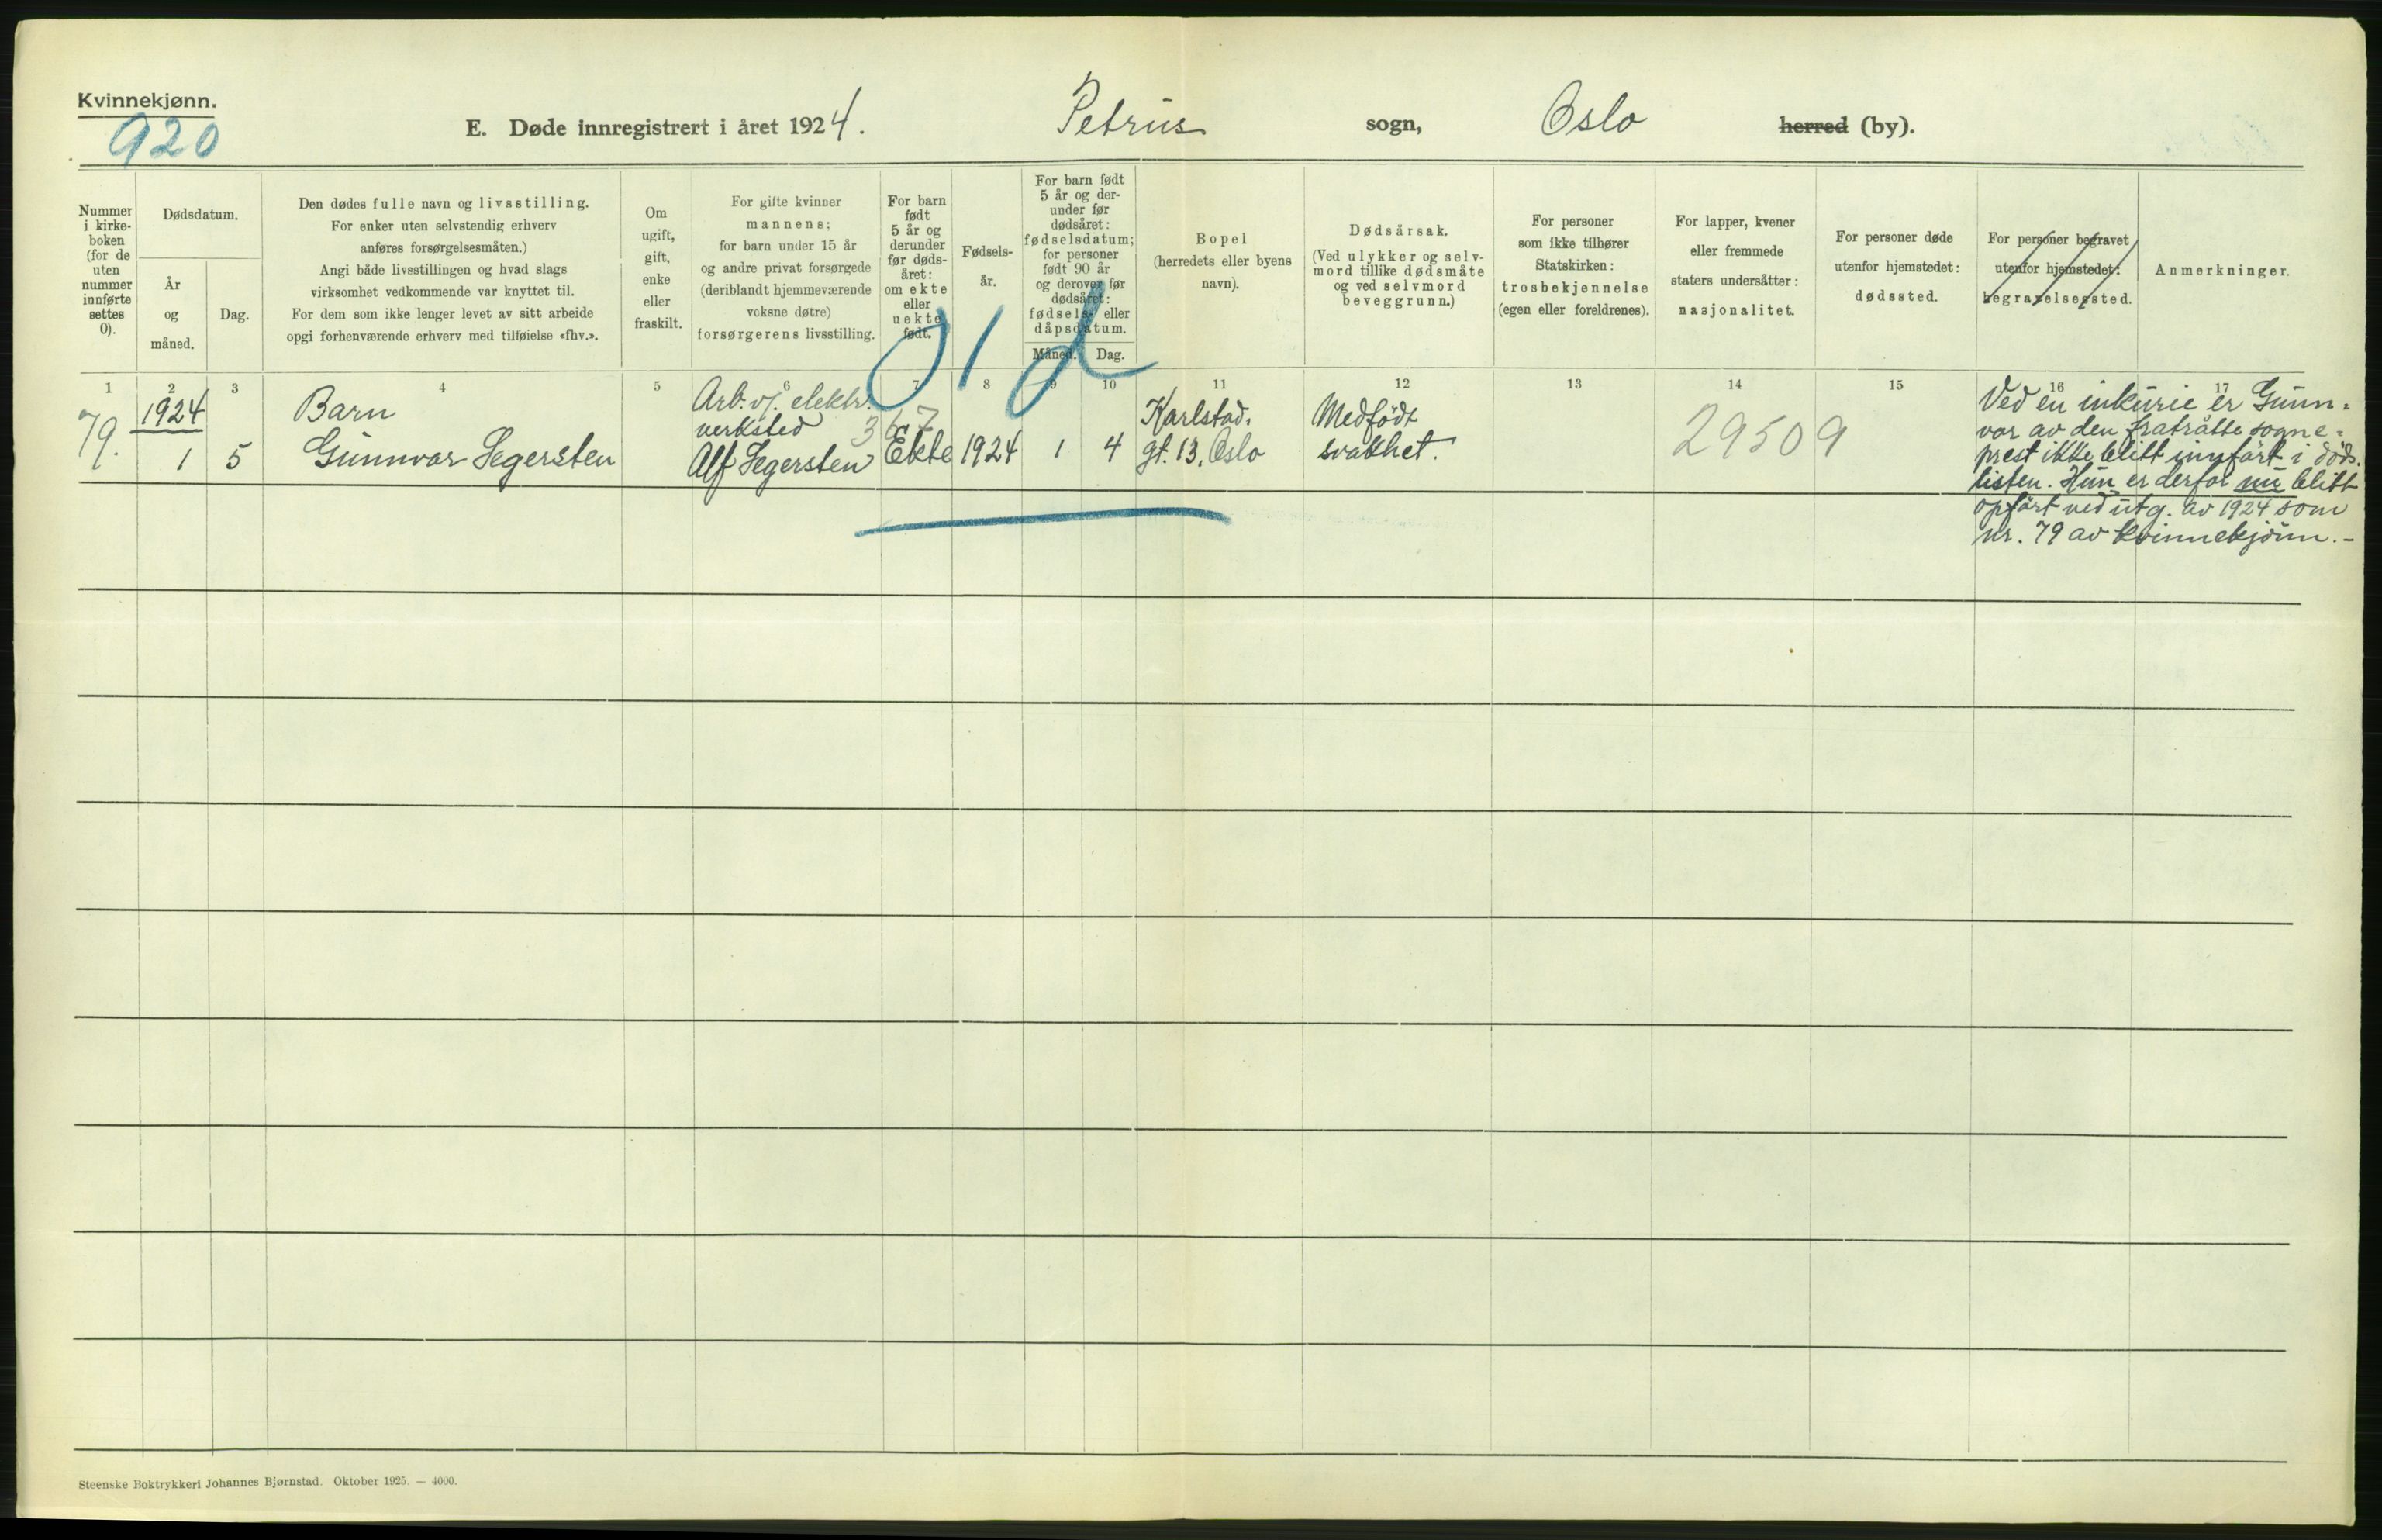 Kvinnekjønn.
920
E. Døde innregistrert i året 1924.
Petrus sogn, Oslo herred (by).
Nummer
i kirke-
boken
(for de
uten
nummer
innførte
settes
0).
Dødsdatum.
År
og
måned.
Dag.
Den dødes fulle navn og livsstilling.
For enker uten selvstendig erhverv
anføres forsørgelsesmåten.)
Angi både livsstillingen og hvad slags
virksomhet vedkommende var knyttet til.
For dem som ikke lenger levet av sitt arbeide
opgi forhenværende erhverv med tilføielse «fhv.».
Om
ugift,
gift,
enke
eller
fraskilt.
For gifte kvinner
mannens;
for barn under 15 år
og andre privat forsørgede
(deriblandt hjemmeværende
voksne døtre)
forsørgerens livsstilling.
For barn
født
5 år og
derunder
før døds-
året:
om ekte
eller
uekte
født.
Fødsels-
år.
For barn født
5 år og der-
under før
dødsåret:
fødselsdatum;
for personer
født 90 år
og derover før
dødsåret:
fødsels- eller
dåpsdatum.
Måned. Dag.
Bopel
(herredets eller byens
navn).
Dødsårsak.
(Ved ulykker og selv-
mord tillike dødsmåte
og ved selvmord
beveggrunn.)
For personer
som ikke tilhører
Statskirken:
trosbekjennelse
(egen eller foreldrenes).
For lapper, kvener
eller fremmede
staters undersåtter:
nasjonalitet.
For personer døde
utenfor hjemstedet:
dødssted.
For personer begravet
utenfor hjemstedet:
begravelsessted.
Anmerkninger.
1 2 3 4 5 6 7 8 9 10 11 12 13 14 15 16 17
79.
1924
1 5
Barn
Gunnvor Segersten
Arb. v/. elektr.
verksted
Alf Segersten
367
Ekte
1924
1 4
Karlstad.
gt. 13, Oslo
Medfödt
svakhet.
29509
Ved en inkurie er Gunn-
vor av den fratrådte sogne-
prest ikke blitt innført i døds.
listen. Hun er derfor nu blitt
opført ved utg. av 1924 som
nr. 79 av kvinnekjönn.-
Steenske Boktrykkeri Johannes Bjørnstad. Oktober 1925. — 4000.